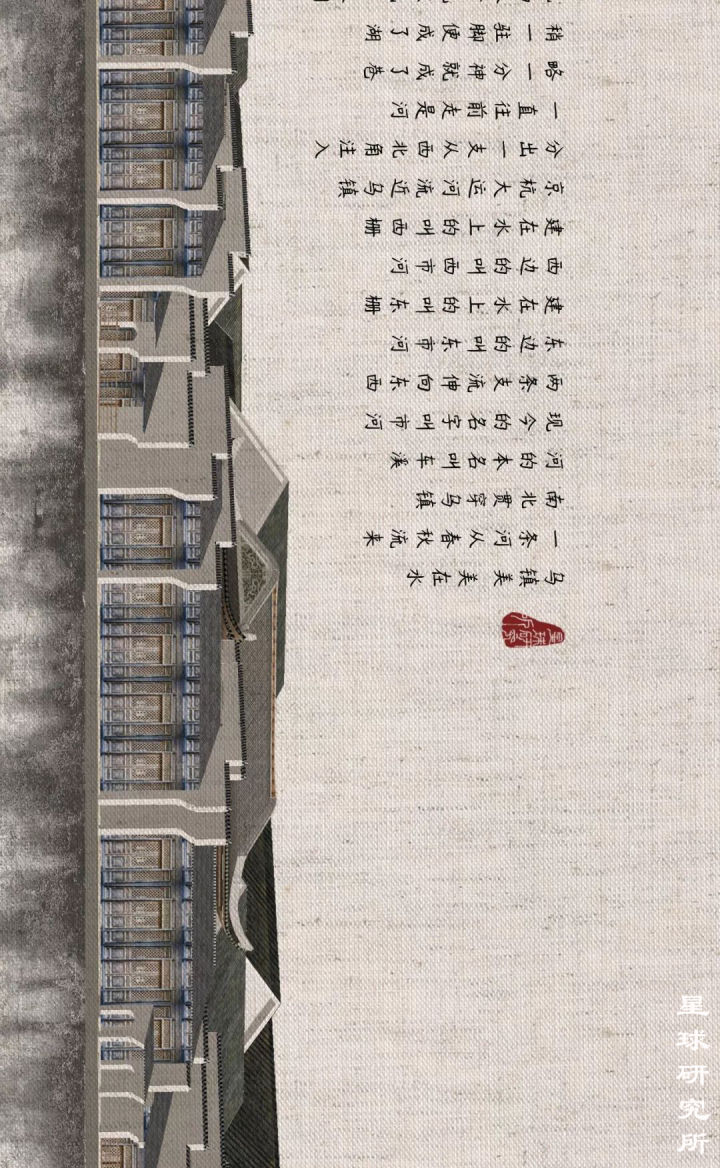 乌镇美 美在水
一条河从春秋流来
南北贯穿乌镇
河的本名叫车溪
现今的名字叫市河
两条支流伸向东西
东边的叫东市河
建在水上的叫东栅
西边的叫西市河
建在水上的叫西栅
京杭大运河流近乌镇
分出一支从西北角注入
一直往前走是河
略一分神就成了巷
稍一驻脚便成了湖
星球研究所
星球研究所